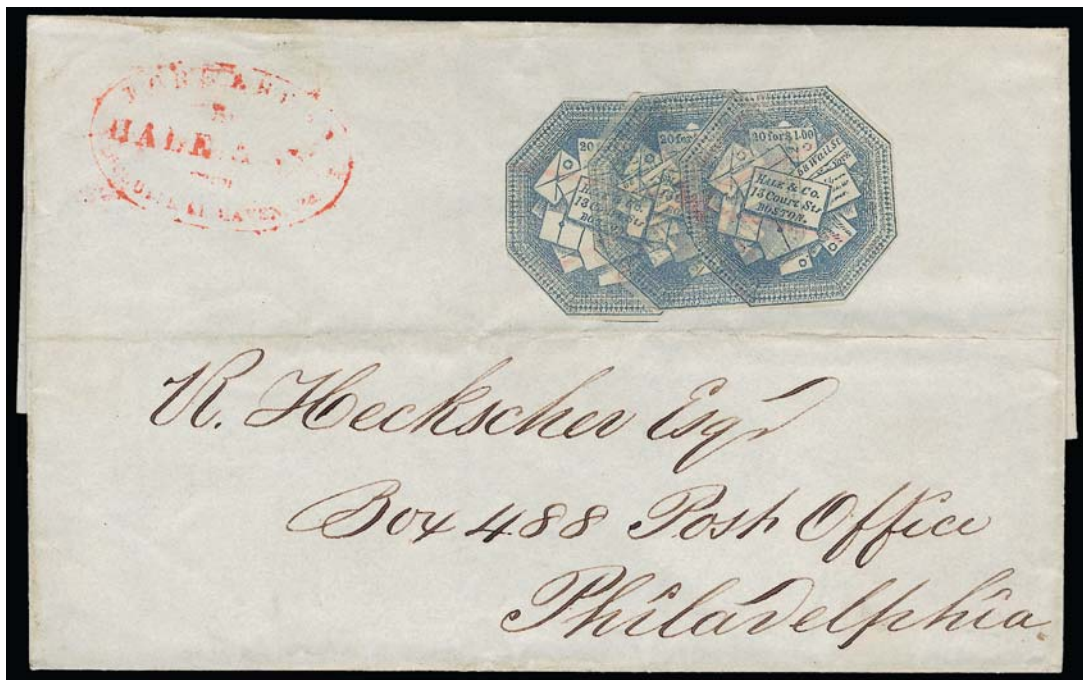 HALE &
20
20 for
20 for $1.00
58 Wall St
York
HALE & Co.
13 Court Str
BOSTON.
R. Heckscher Esqr
Box 488 Post Office
Philadelphia